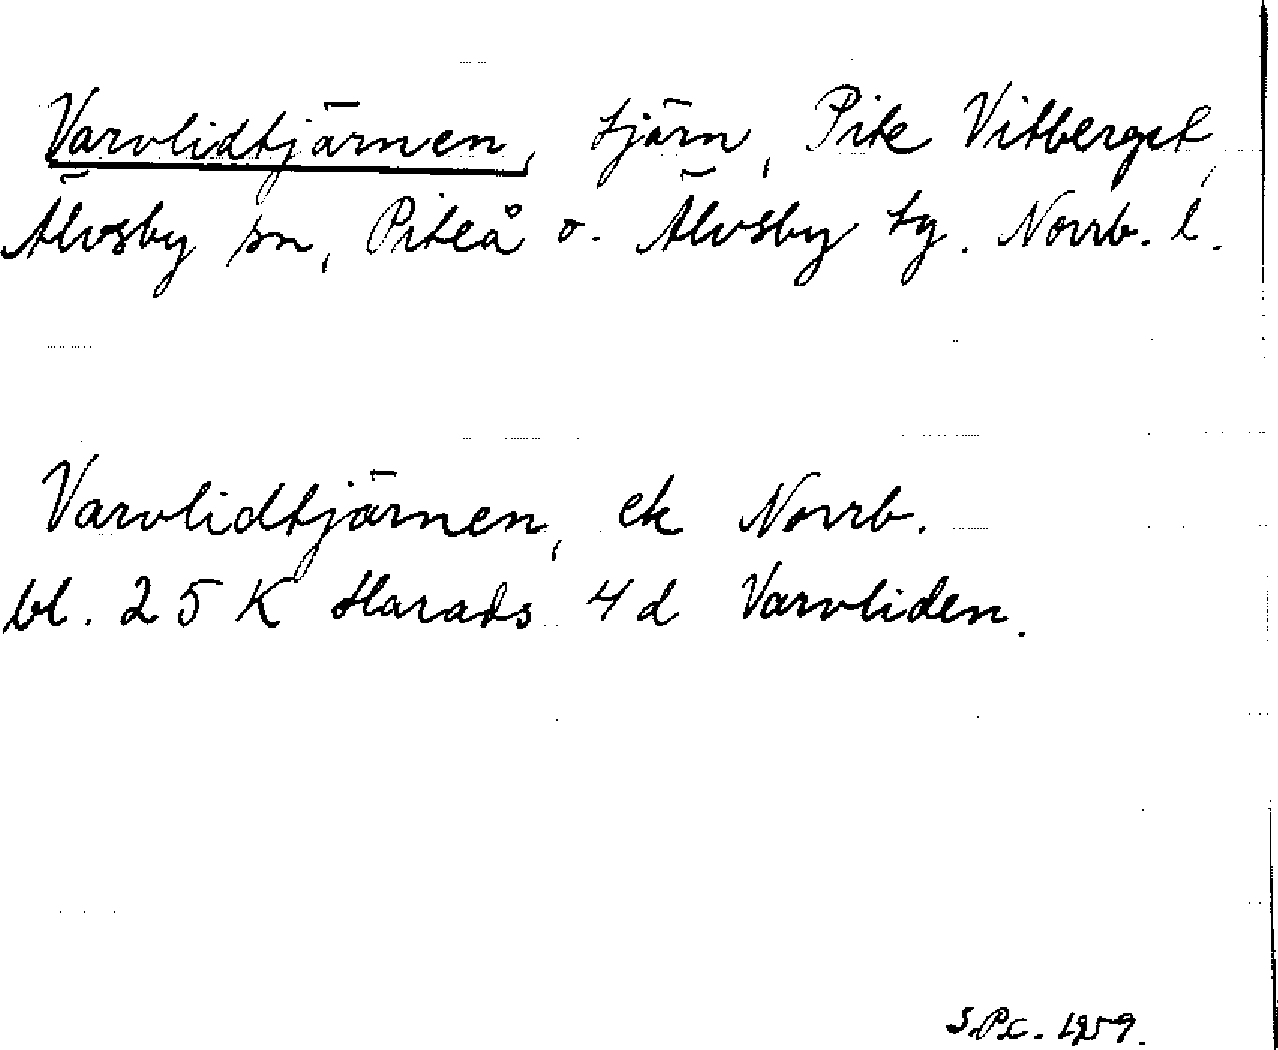 Varvlidtjärnen, tjärn, Pite Vitberget,
Älvsby sn, Piteå o. Älvsby tg. Norrb. l.
Varvlidtjärnen, ek Norrb.
bl. 25 K Harads 4d Varvliden.
S.P.C. 1959.